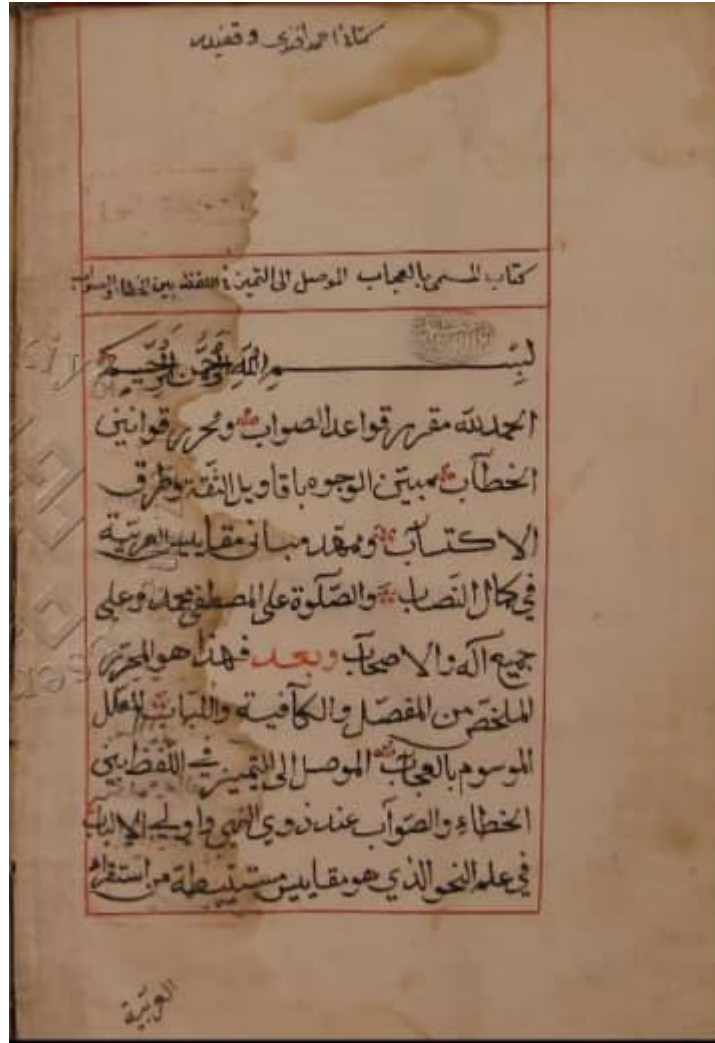 كتابخانه احمد افندى وقفيدر
كتاب المسمى بالعجاب الموصل الى التميز فى اللفظ بين الخطا والصواب
بسم الله الرحمن الرحيم
الحمد لله مقرر قواعد الصواب ومحرر قوانين
الخطآب مبين الوجوه باقاويل الثقة وطرق
الاكتساب وممهد مبانى مقاييس العربية
في كمال النصاب والصّلوة على المصطفى محمد وعلى
جميع آله والاصحاب وبعد فهذا هو المحرّر
الملخّص من المفصّل والكآفية واللباب المعلل
الموسوم بالعجاب الموصل الى التميز في اللفظ بين
الخطاء والصّوآب عند ذوي النهى واولي الالباب
في علم النحو الذي هو مقاييس مستنبطة من استقراء
العربيّة